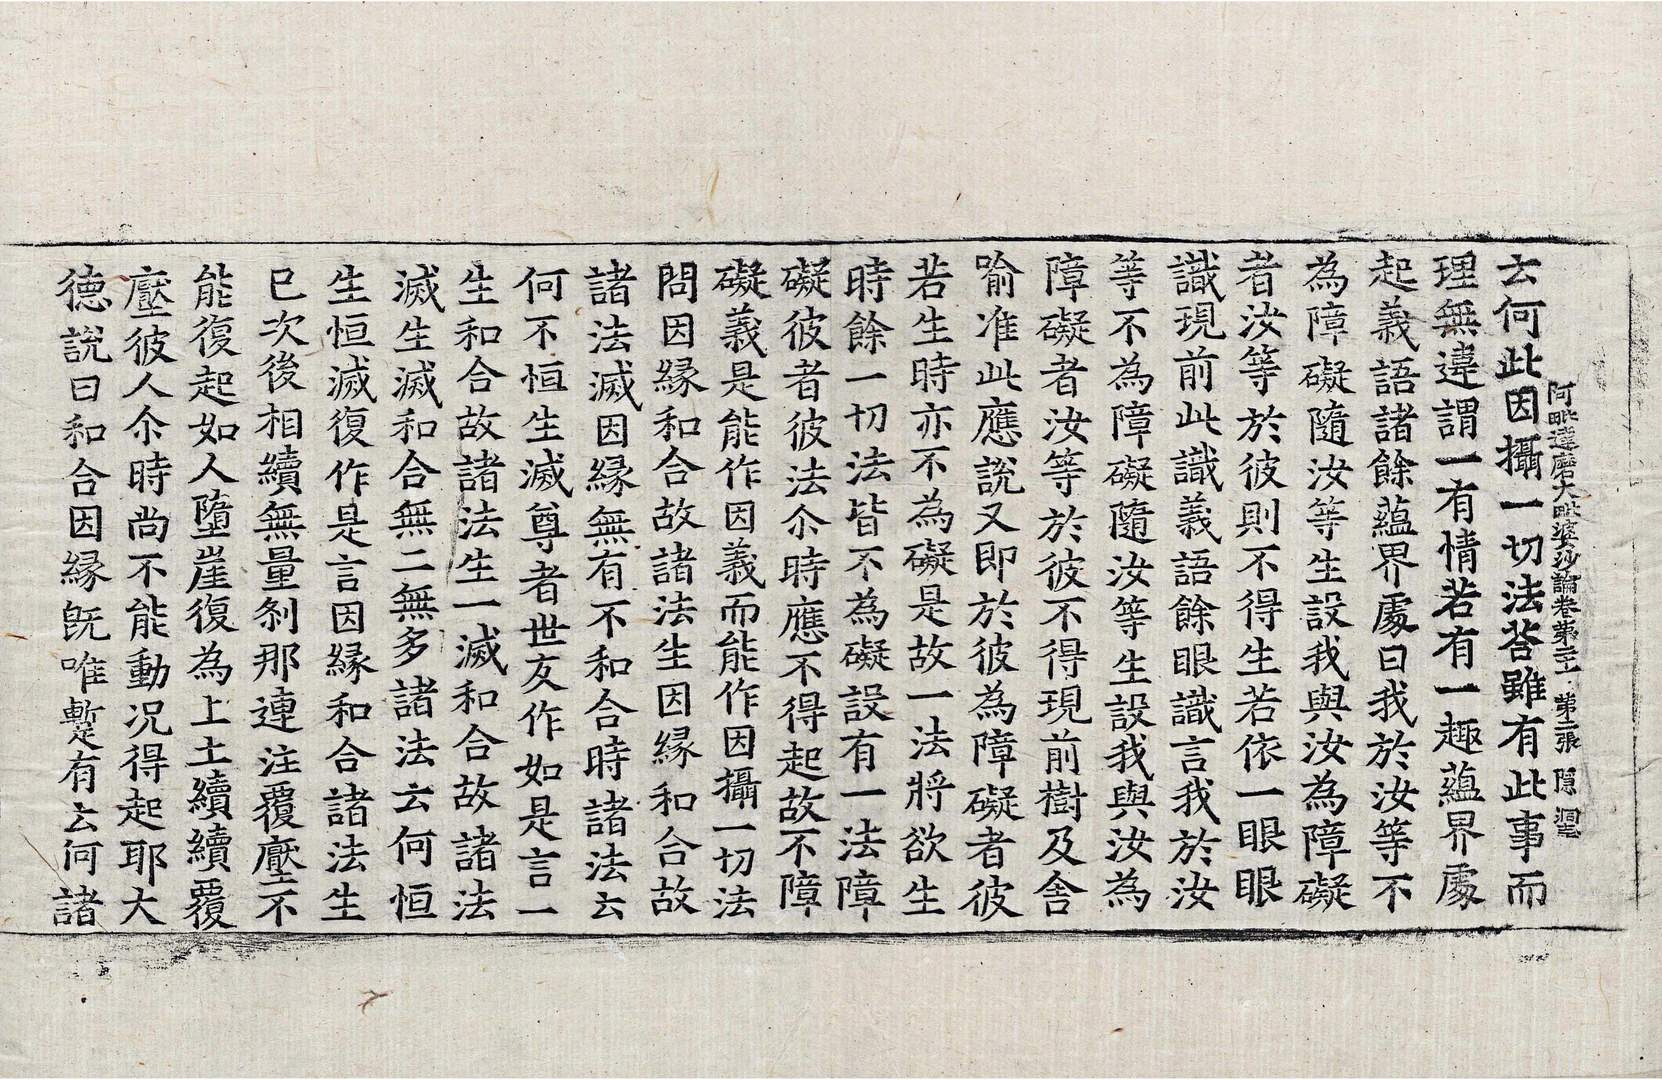 阿毗達磨大毗婆沙論卷第二十一 第二張 隱
云何此因攝一切法荅雖有此事而
理無違謂一有情若有一趣蘊界處
起義語諸餘蘊界處曰我於汝等不
為障礙隨汝等生設我與汝為障礙
者汝等於彼則不得生若依一眼眼
識現前此識義語餘眼識言我於汝
等不為障礙隨汝等生設我與汝為
障礙者汝等於彼不得現前樹及舍
喻准此應說又即於彼為障礙者彼
若生時亦不為礙是故一法將欲生
時餘一切法皆不為礙設有一法障
礙彼者彼法尒時應不得起故不障
礙義是能作因義而能作因攝一切法
問因緣和合故諸法生因緣和合故
諸法滅因緣無有不和合時諸法云
何不恒生滅尊者世友作如是言一
生和合故諸法生一滅和合故諸法
滅生滅和合無二無多諸法云何恒
生恒滅復作是言因緣和合諸法生
已次後相續無量剎那連注覆壓不
能復起如人墮崖復為上土續續覆
壓彼人尒時尚不能動況得起耶大
德說曰和合因緣旣唯蹔有云何諸